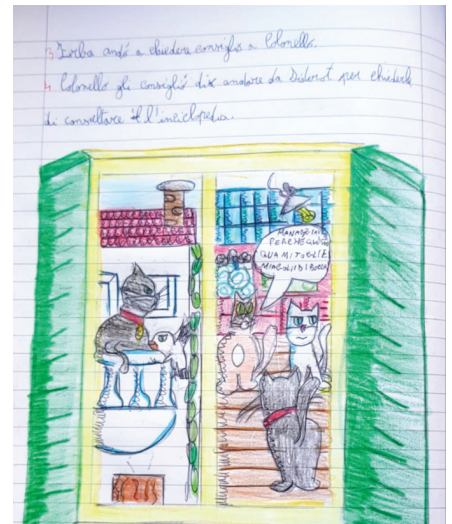 3 Zorba andò a chiedere consiglio a Colonello.
4 Colonello gli consigliò di andare da Diderot per chiederle
di consultare l'inciclopedia.
PERCHÈ QUESTO
QUA MI TOGLIE
MIAGOLII DI BOCCA